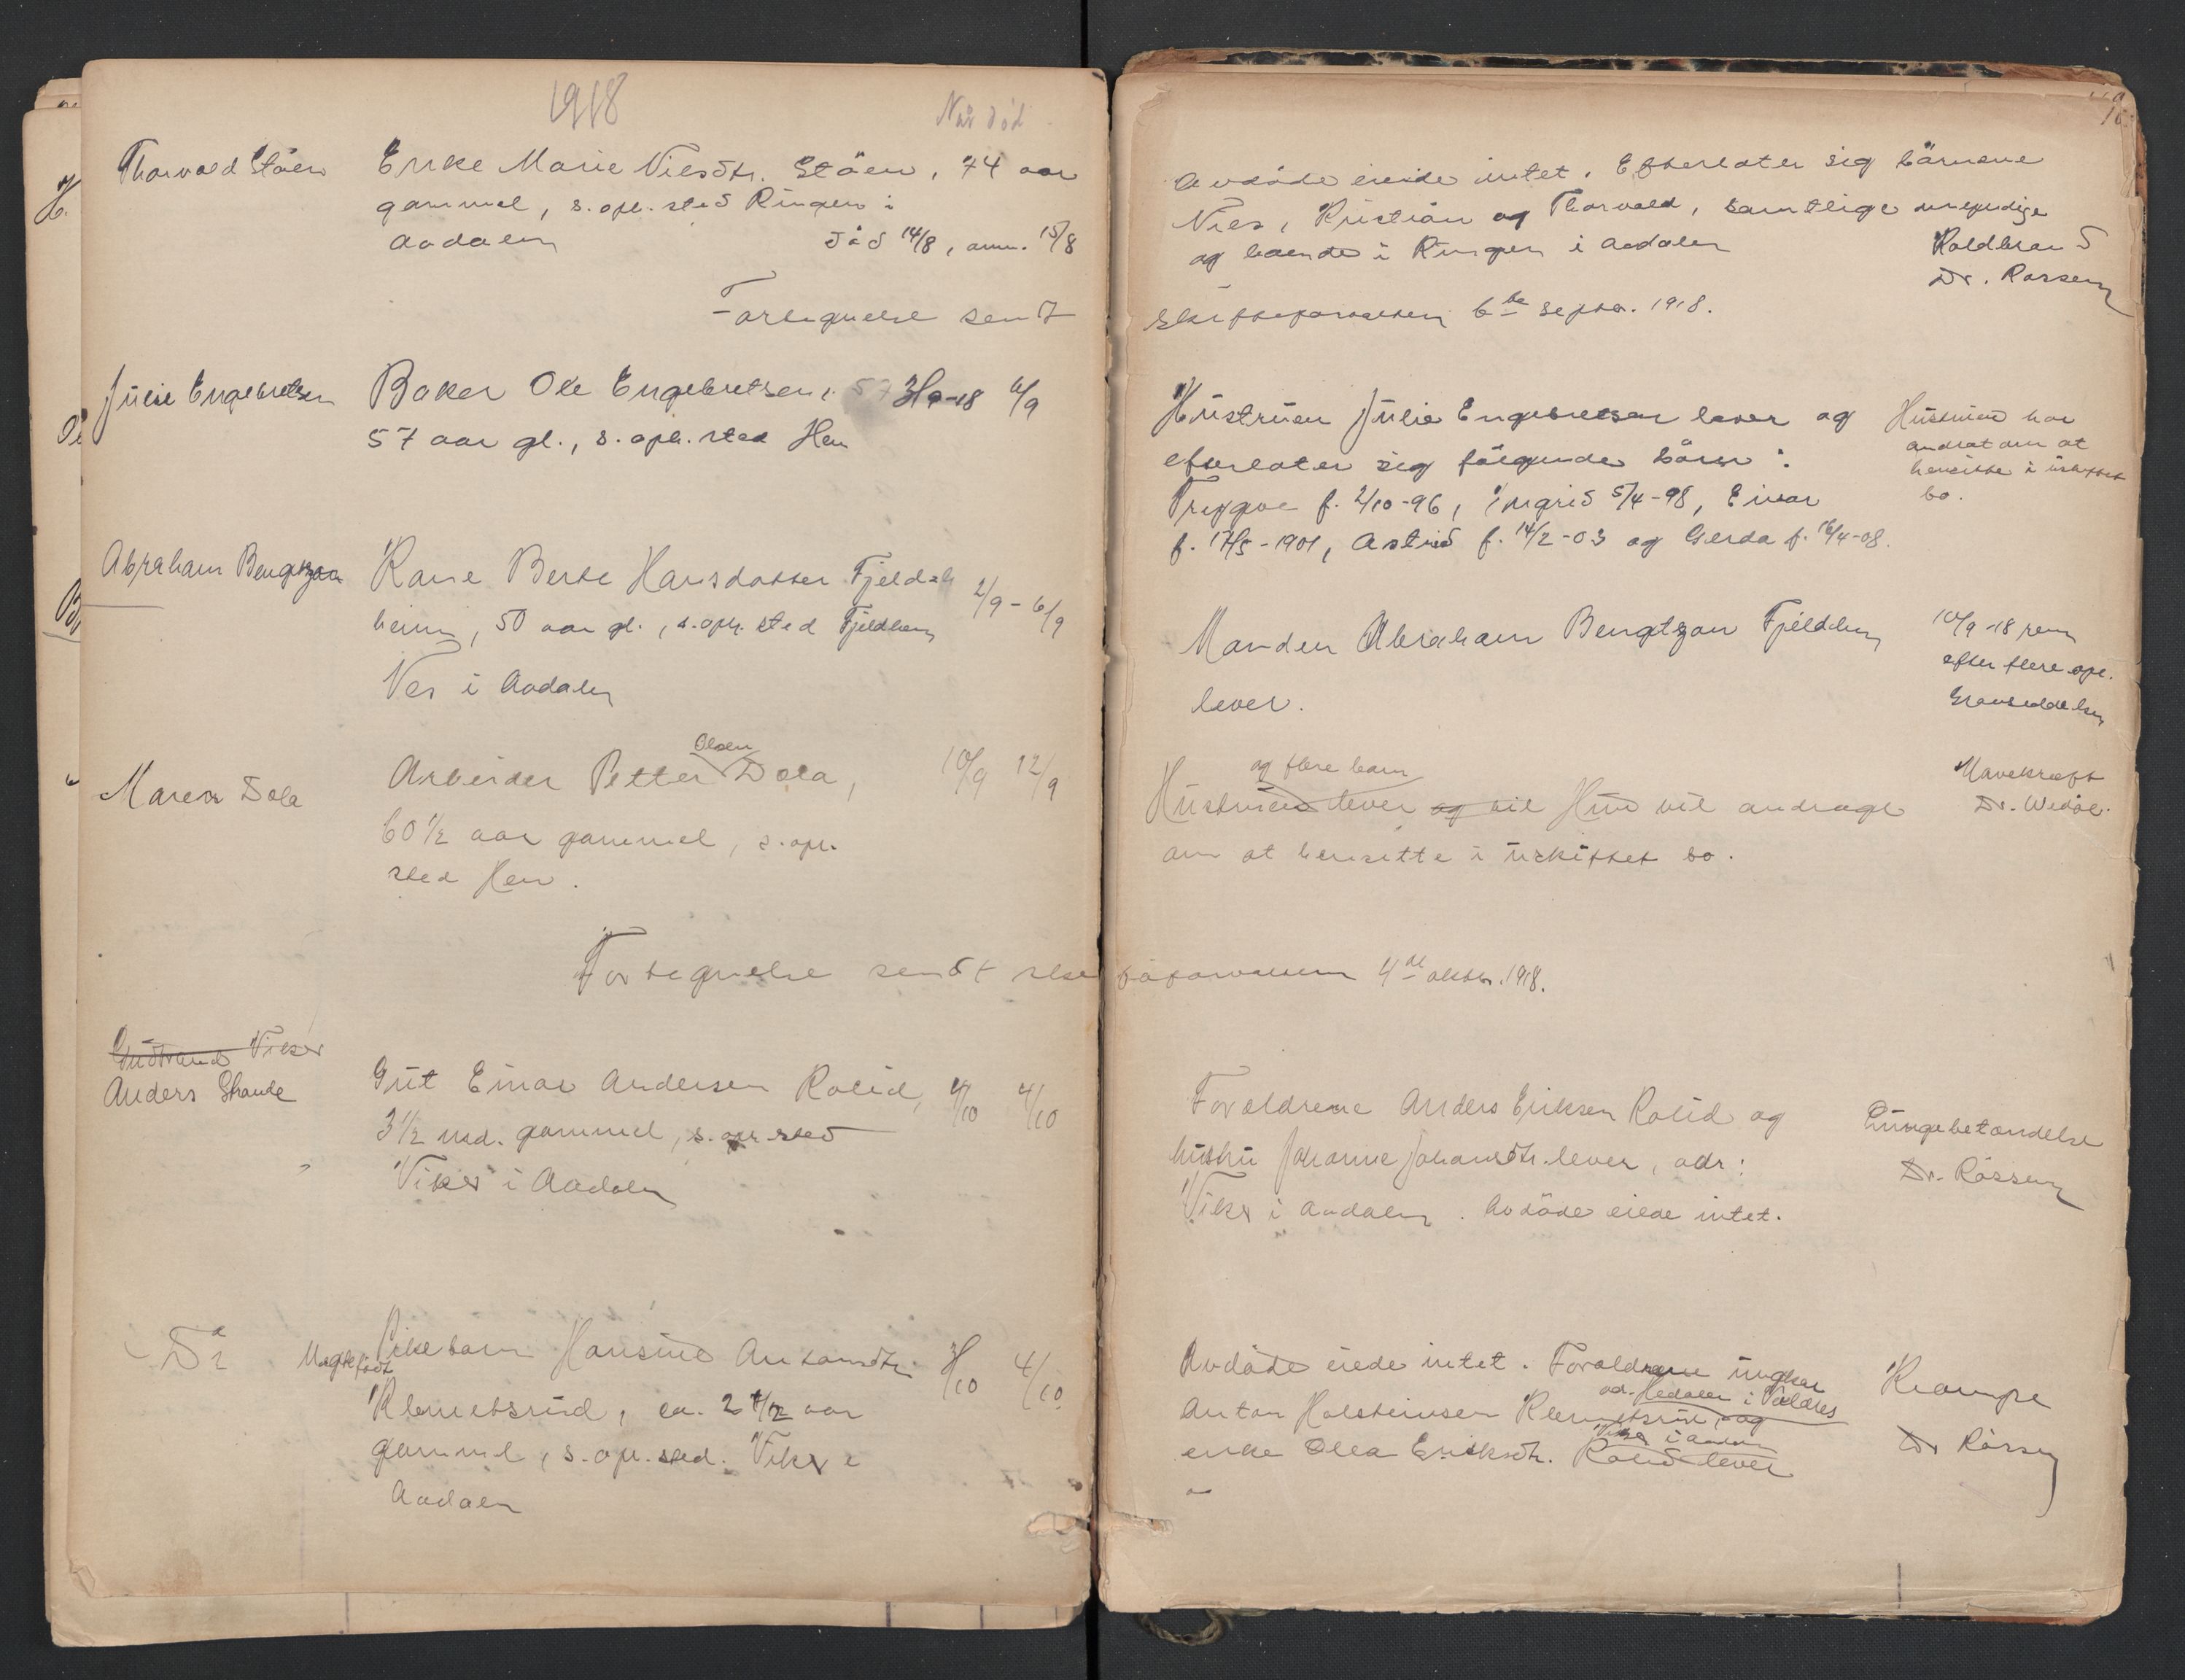 1918
Når död
Thorvald Stöen
Enke Marie Nilsdtr. Stöen, 74 aar
gammel, s. oph. sted Ringen i
Aadalen
död 14/8, anm. 15/8
Fortegnelse sendt
Julie Engebretsen
Baker Ole Engebretsen, 57 3/9-18 6/9
57 aar gl., s. oph. sted Hen
Abraham Bengtzon
Kone Berte Hansdatter Fjeld-
heim, 50 aar gl., s. oph. sted Fjeldheim 2/9 - 6/9
Nes i Aadalen
Maren Dola
Olsen
Arbeider Petter Dola, 10/9 12/9
60 1/2 aar gammel, s. oph.
sted Hen.
Fortegnelse sendt skifteforvalteren 4de oktbr. 1918.
Gudbrand Viker
Anders Strande
Gut Einar Andersen Rolid, 2/10 4/10
3 1/2 md. gammel, s. oph. sted
Viker i Aadalen
Do
Uegtefödt
Pikebarn Hansine Antonsdtr. 3/10 4/10
Klemetsrud, ca. 2 1/2 aar
gammel, s. oph. sted. Viker i
Aadalen
Avdöde eiede intet. Efterlater sig börnene
Nils, Kristian og Thorvald, samtlige myndige
og boende i Ringen i Aadalen
Koldbrand
Dr. Rossen
Skifteforvalteren 6te septbr. 1918.
Hustruen Julie Engebretsen lever og
efterlater sig fölgende börn:
Trygve f. 2/10-96, Ingrid 5/4-98, Einar
f. 17/5-1901, Astrid f. 14/2-03 og Gerda f. 16/4-08.
Hustruen har
andrat om at
hensitte i uskiftet
bo.
Manden Abraham Bengtzon Fjeldheim
lever.
10/9-18
efter flere opl.
og flere barn
Hustruen lever og vil Hun vil andrage
om at hensitte i uskiftet bo.
Mavekræft
Dr. Wedöe.
Forældrene Anders Eriksen Rolid og
hustru Johanne Johansdtr. lever, adr:
Viker i Aadalen. Avdöde eiede intet.
Lungebetændelse
Dr. Rössen
Avdöde eiede intet. Forældrene ungkar
ad. Hedalen i Valdres
Anton Holsteinsen Klemetsrud, og
Viker i Aadalen
enke Olea Eriksdtr. Rolid lever
Krampe
Dr Rössen